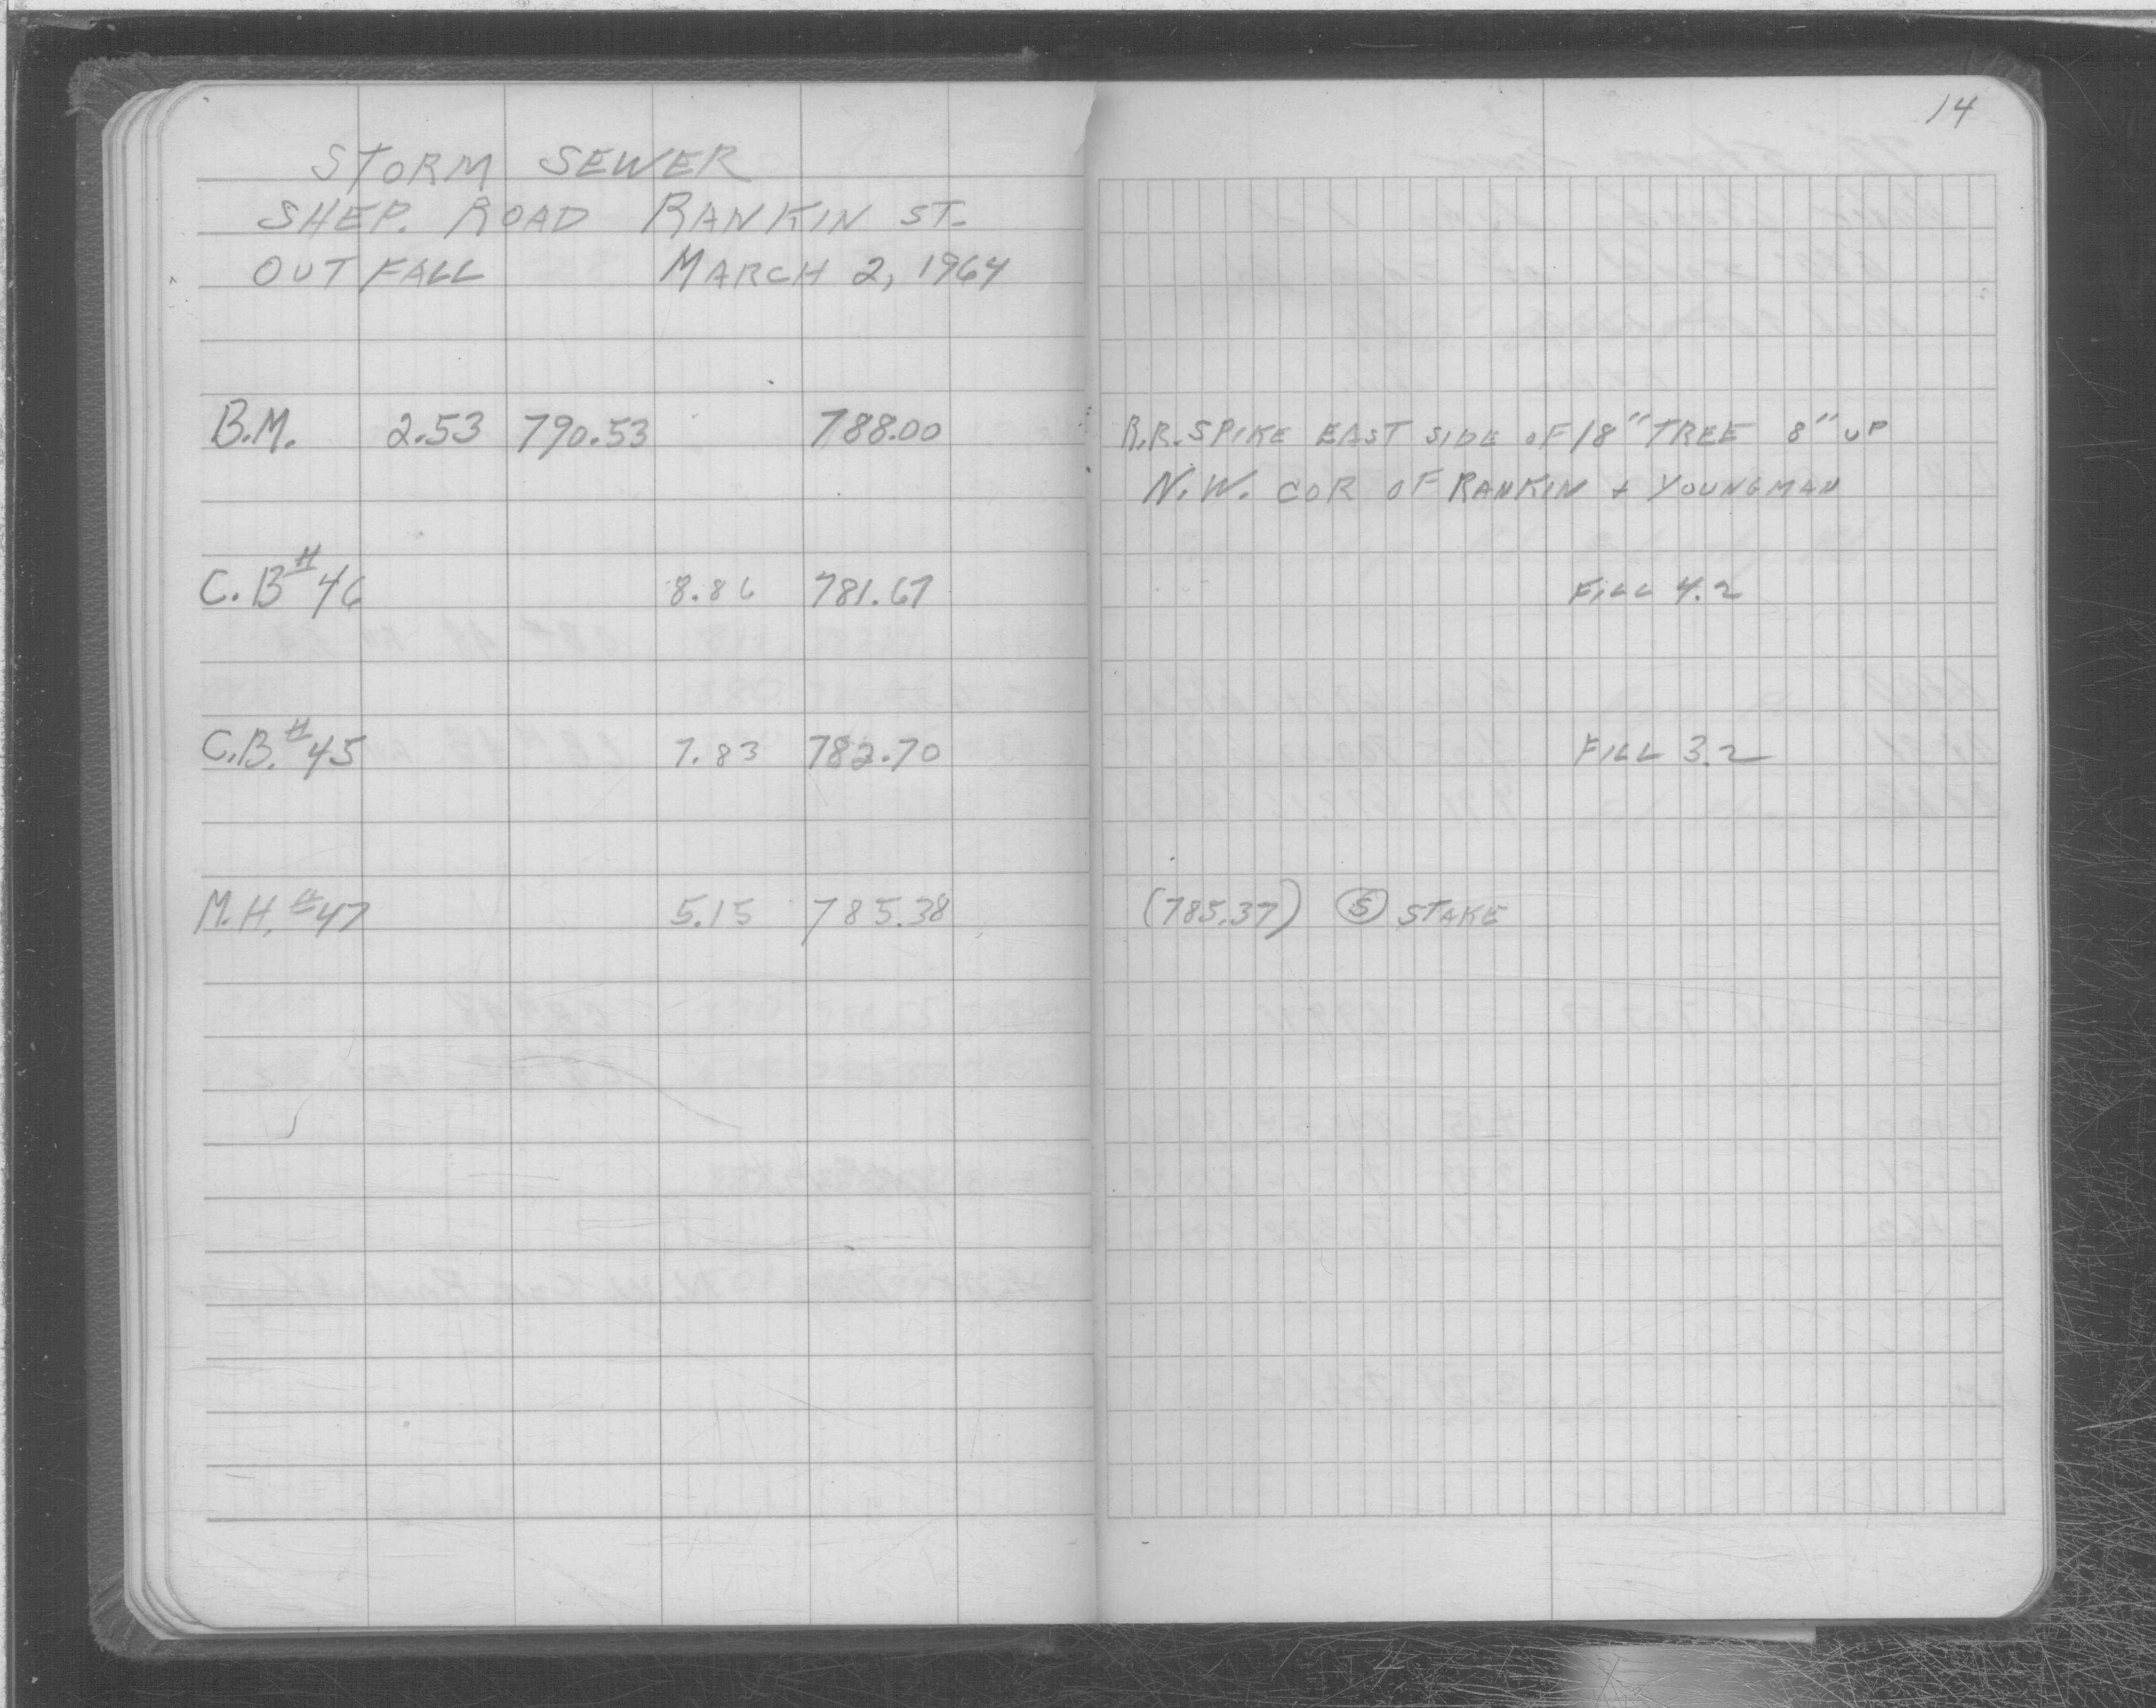 14
STORM SEWER
SHEP. ROAD RANKIN ST.
OUT FALL MARCH 2, 1964
B.M. 2.53 790.53 788.00 R.R. SPIKE EAST SIDE OF 18" TREE 8" UP
N.W. COR OF RANKIN + YOUNGMAN
C.B#46 8.86 781.67 FILL 4.2
C.B.#45 7.83 782.70 FILL 3.2
M.H.#47 5.15 785.38 (785.37) S STAKE